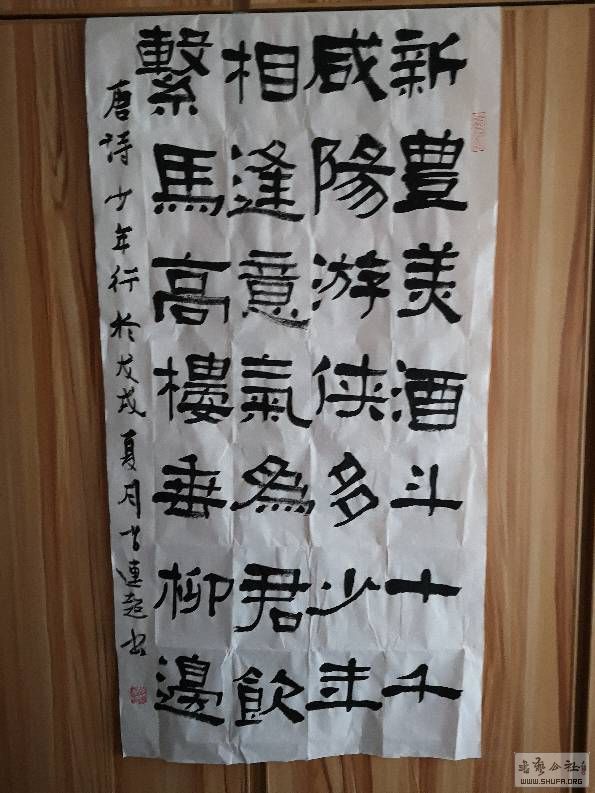 新豊美酒斗十千
咸陽游侠多少年
相逢意氣為君飲
繫馬高樓垂柳邊
唐詩少年行於戊戌夏月吉連超書
WWW.SHUFA.ORG